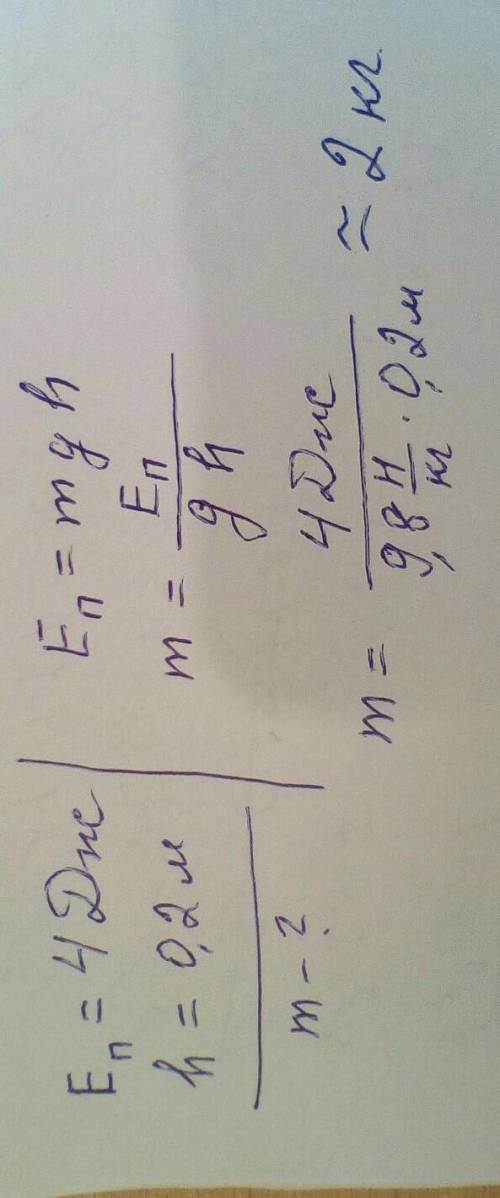 Eп = 4 Дж
h = 0,2 м
m - ?
Eп = m g h
m = Eп / g h
m = 4 Дж / 9,8 Н/кг · 0,2 м ≃ 2 кг